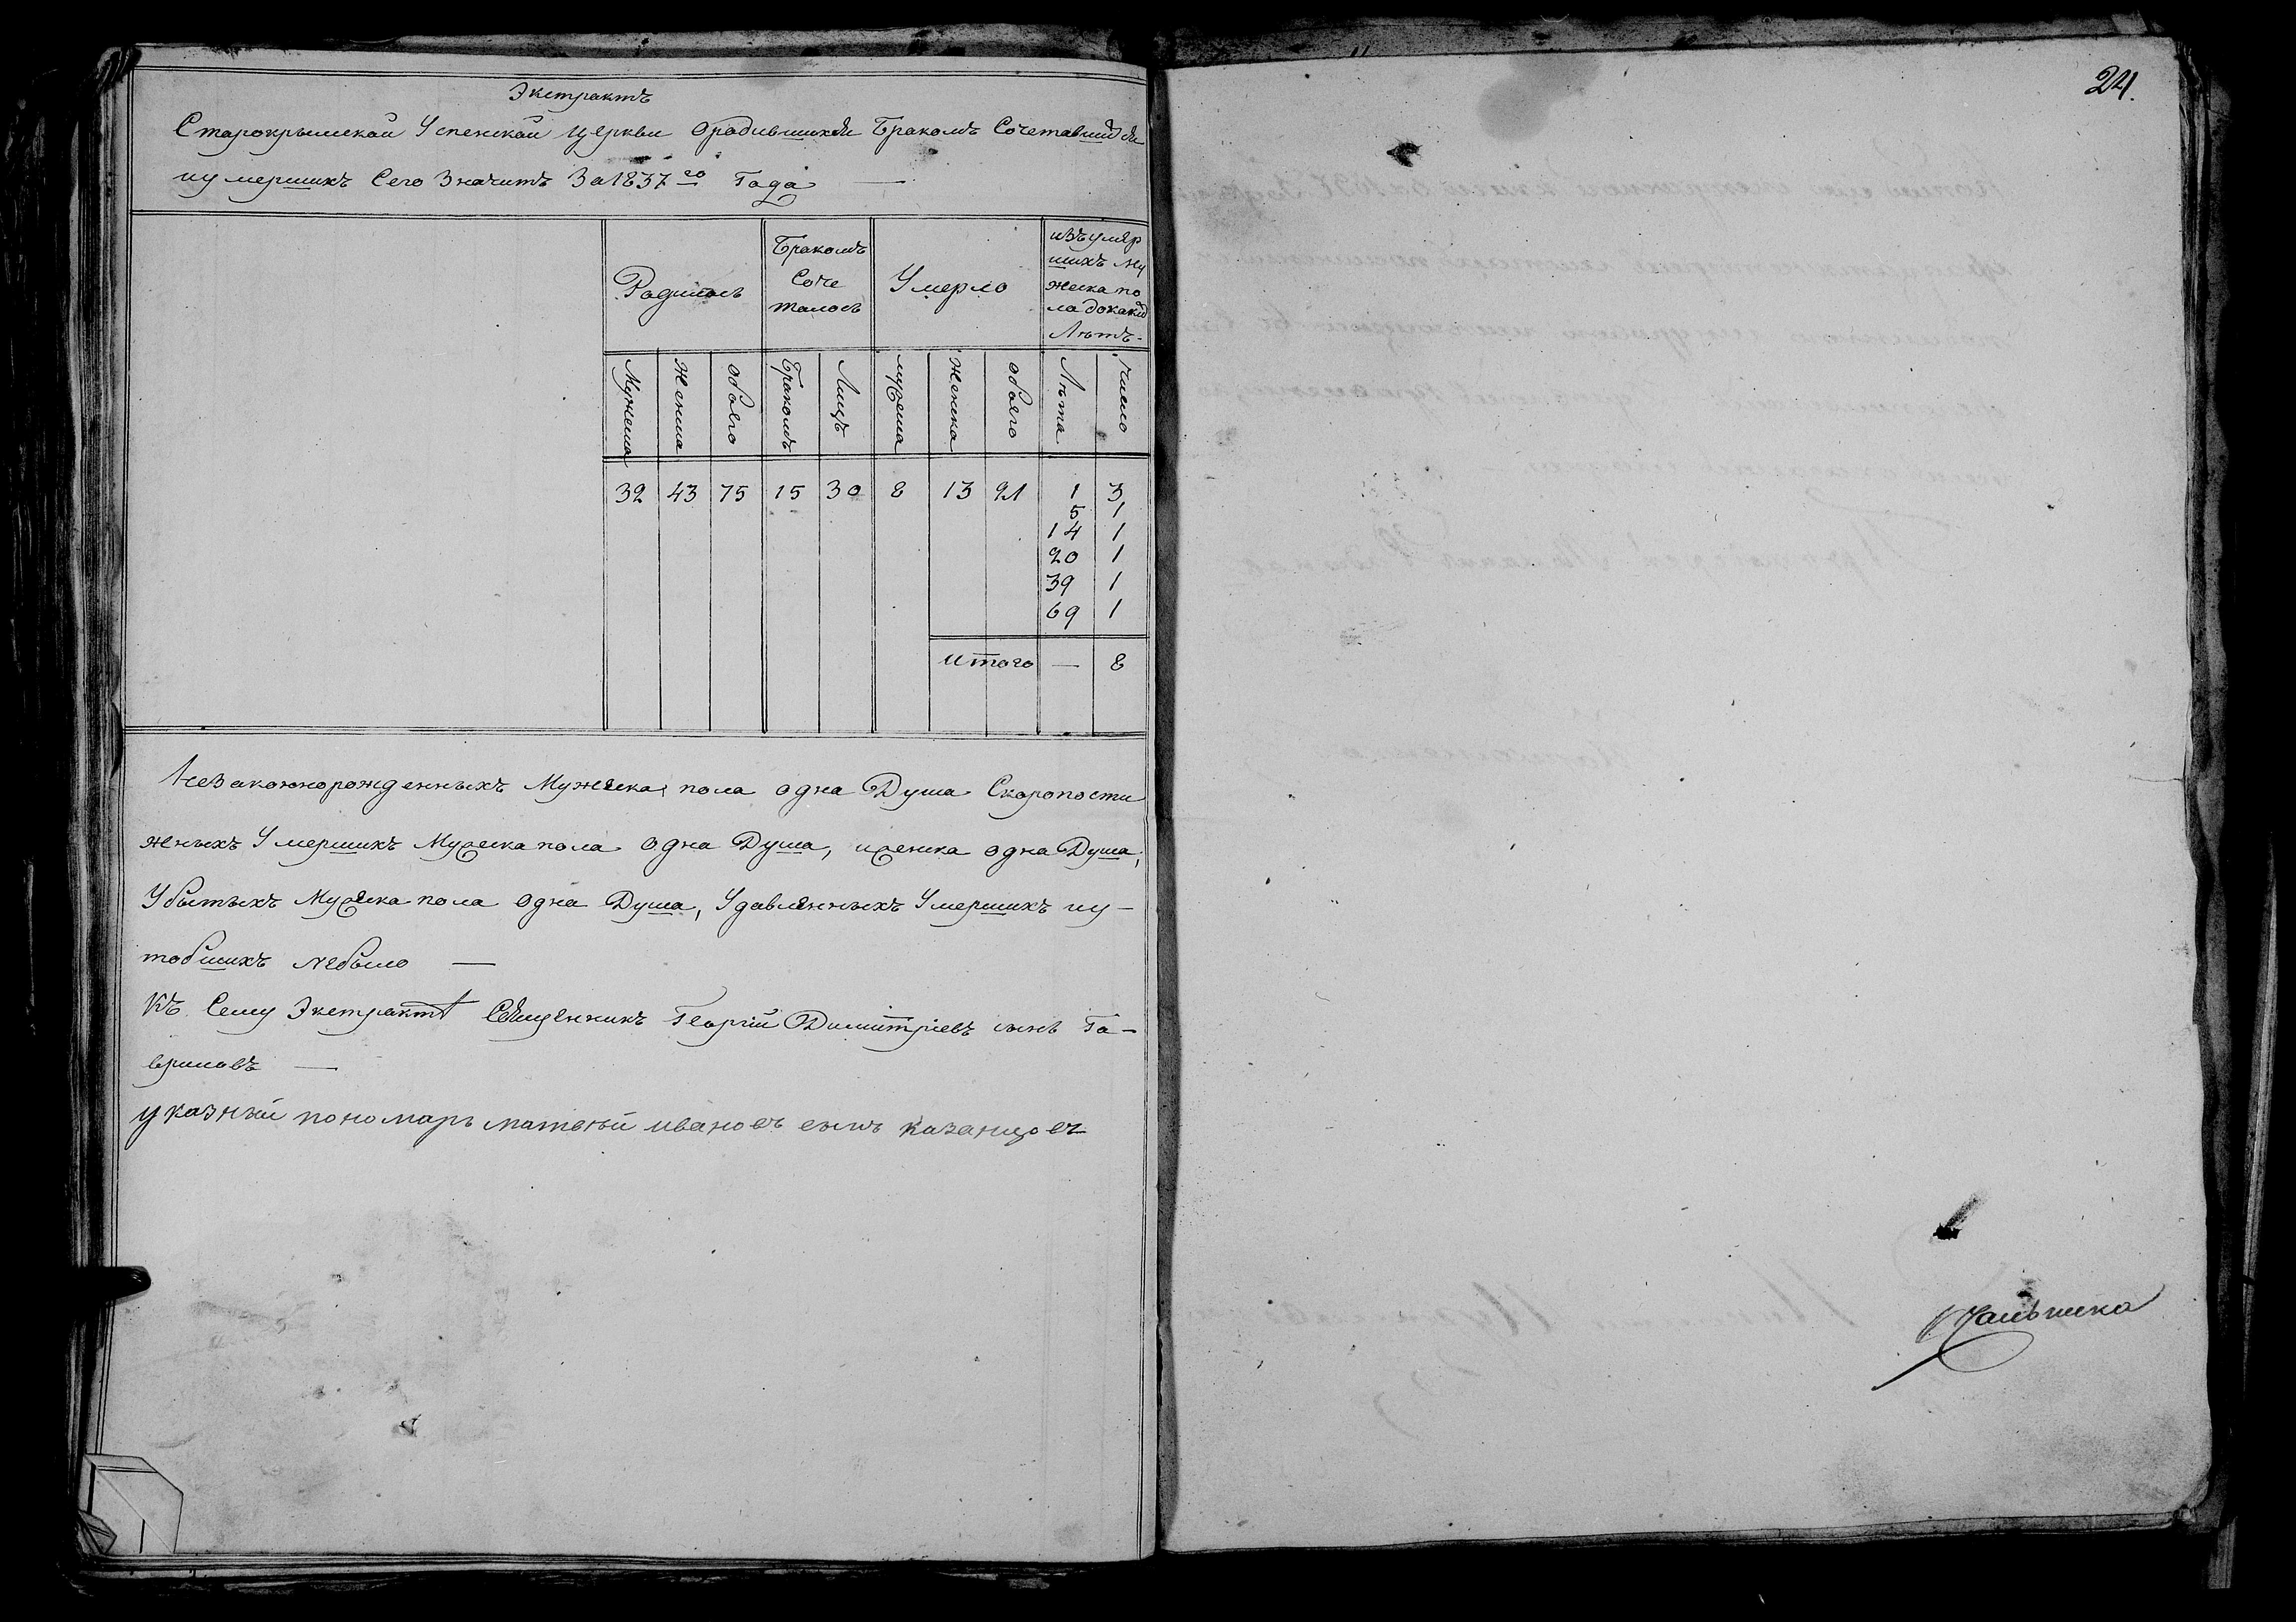 Экстрактъ
Старокрымской Успенской церкви ородившихся Бракомъ Сочетавшихся
иумершихъ Сего Значитъ За 1837го Года —
Родилось
Бракомъ
Соче
талось
Умерло
изъ умер
шихъ му
жеска по
ла докаких
Лѣтъ.
Мужеска
Женска
обоего
Бракомъ
Лицъ
мужеска
женска
обоего
Лѣта
число
32 43 75 15 30 8 13 21 1 3
5 1
14 1
20 1
39 1
69 1
итого — 8
Незаконнорожденныхъ Мужеска пола одна Душа Скоропости
жныхъ Умершихъ Мужеска пола одна Душа, иженска одна Душа,
Убитыхъ Мужеска пола одна Душа, Удавленныхъ Умершихъ иу-
топшихъ небыло —
Къ Сему Экстракту Священникъ Георгій Димитріевъ сынъ Га-
вриловъ —
указный пономарь матвѣй ивановъ сынъ казанцовъ
24.